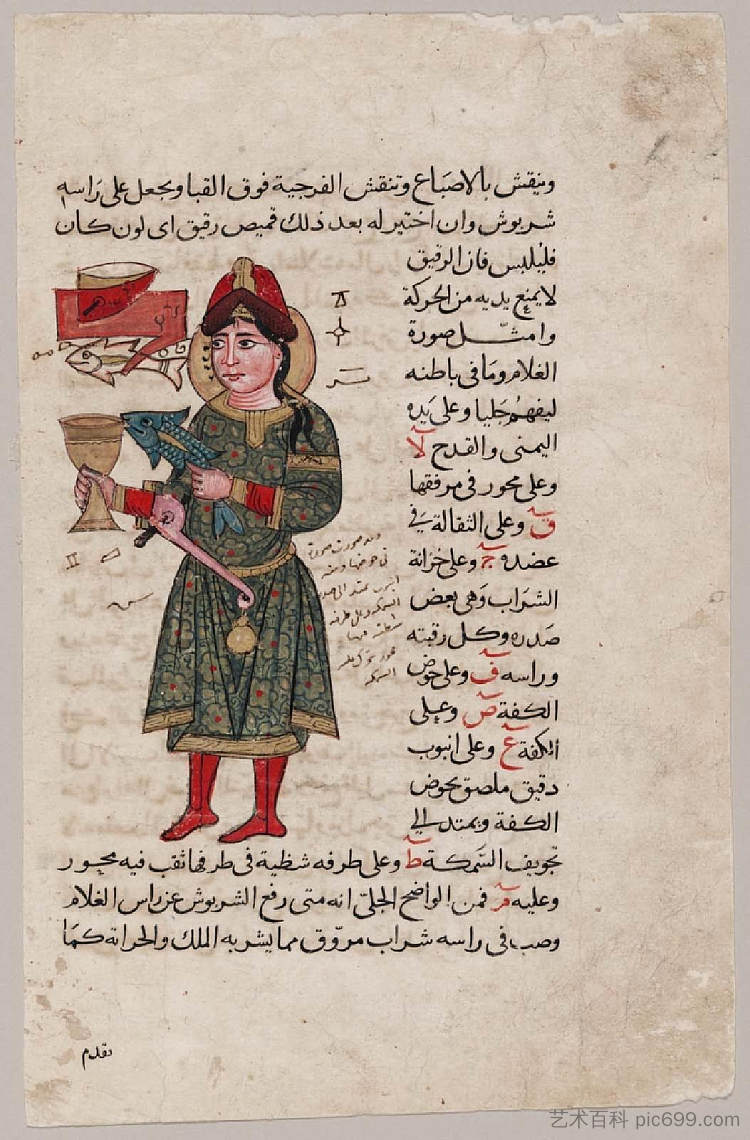 وينقش بالاصباع وتنقش الفرجية فوق القبا ويجعل على راسه
شربوش وان اختير له بعد ذلك قميص رقيق اى لون كان
فليلبس فان الرقيق
لا يمنع يديه من الحركة
وامثل صورة
الغلام وما فى باطنه
ليفهم جليا وعلى يده
اليمنى والقدح لا
وعلى محور فى مرفقها
ق وعلى الثقالة فى
عضده ج وعلى خزانة
الشراب وهى بعض
صدره وكل رقبته
وراسه ف وعلى حوض
الكفة ص وعلى
الكفة ع وعلى انبوب
دقيق ملصق بحوض
الكفة ويمتد الى
تجويف السمكة ط وعلى طرفه شظية فى طرفها ثقب فيه محور
وعليه فمن الواضح الجلى انه متى رفع الشربوش عن راس الغلام
وصب فى راسه شراب مروق مما يشربه الملك والخزانة كما
تقدم
艺术百科 pic699.com